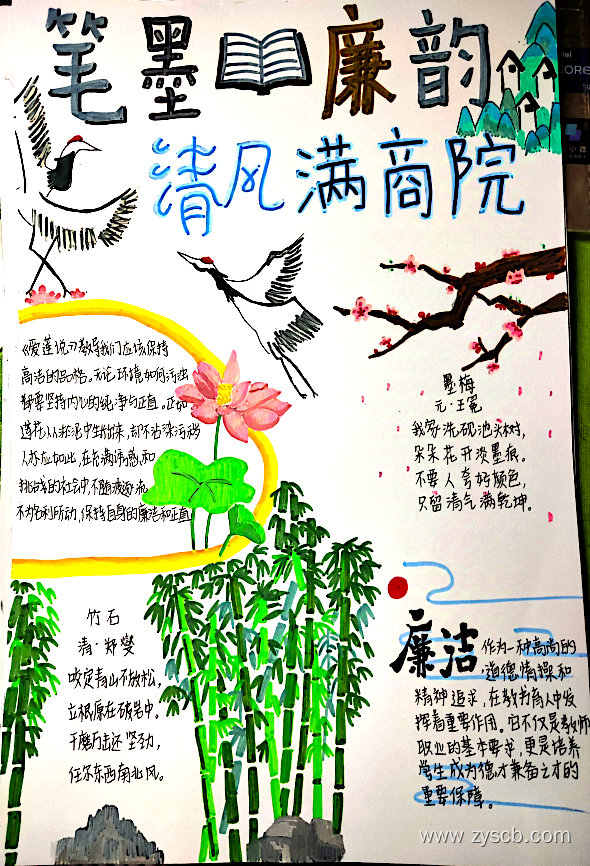 笔墨廉韵
清风满商院
《爱莲说》教导我们应该保持
高洁的品格。无论环境如何污浊
都要坚持内心的纯净与正直。正如
莲花从淤泥中生长出来,却不沾染污秽
人亦应如此,在充满诱惑和
挑战的社会中,不随波逐流
不为名利所动,保持自身的廉洁和正直
墨梅
元·王冕
我家洗砚池头树,
朵朵花开淡墨痕。
不要人夸好颜色,
只留清气满乾坤。
竹石
清·郑燮
咬定青山不放松,
立根原在破岩中。
千磨万击还坚劲,
任尔东西南北风。
廉洁 作为一种高尚的
道德情操和
精神追求,在教书育人中发
挥着重要作用。它不仅是教师
职业的基本要求,更是培养
学生成为德才兼备之才的
重要保障。
www.zyscb.com